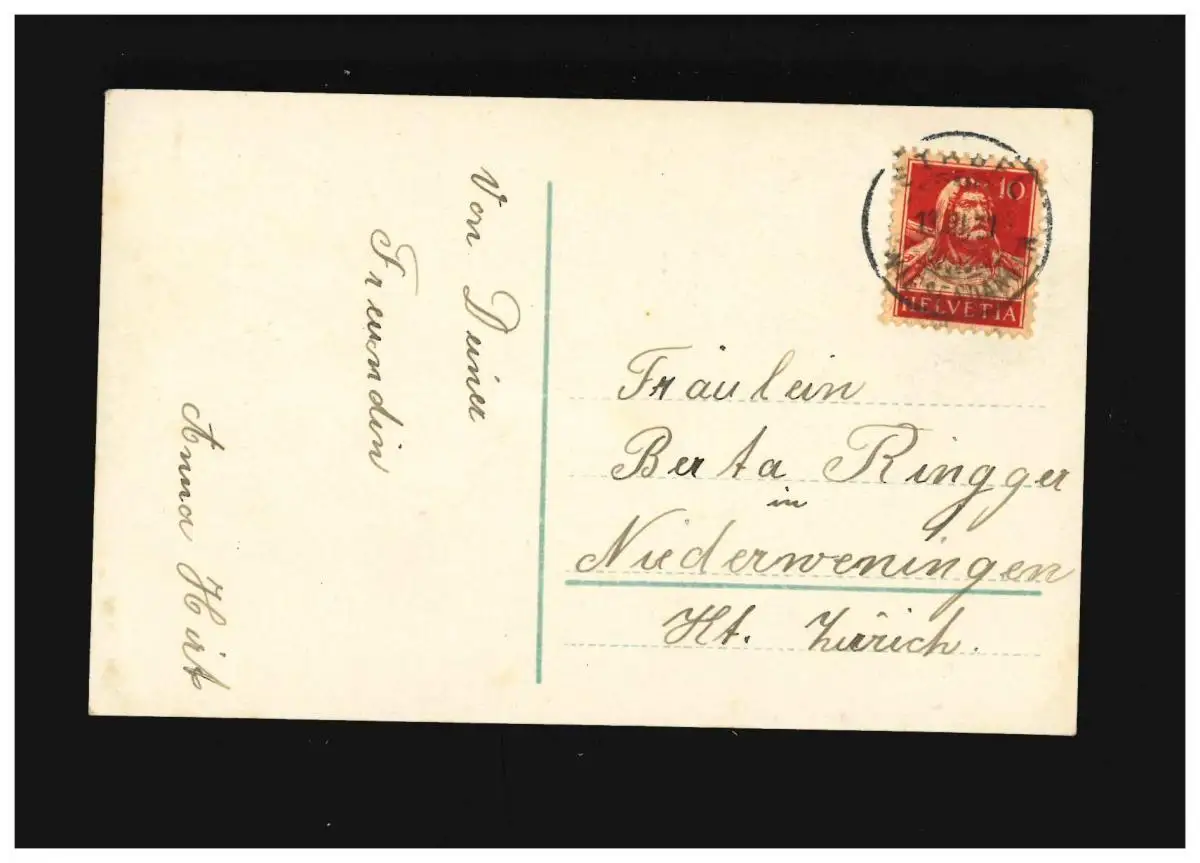 Von Deiner
Freundin
Anna Hirt
10
HELVETIA
Fräulein
Berta Ringger
in
Niederweningen
Kt. Zürich.